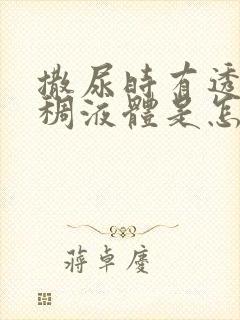 撒尿时有透
稠液體是怎
蔣卓慶